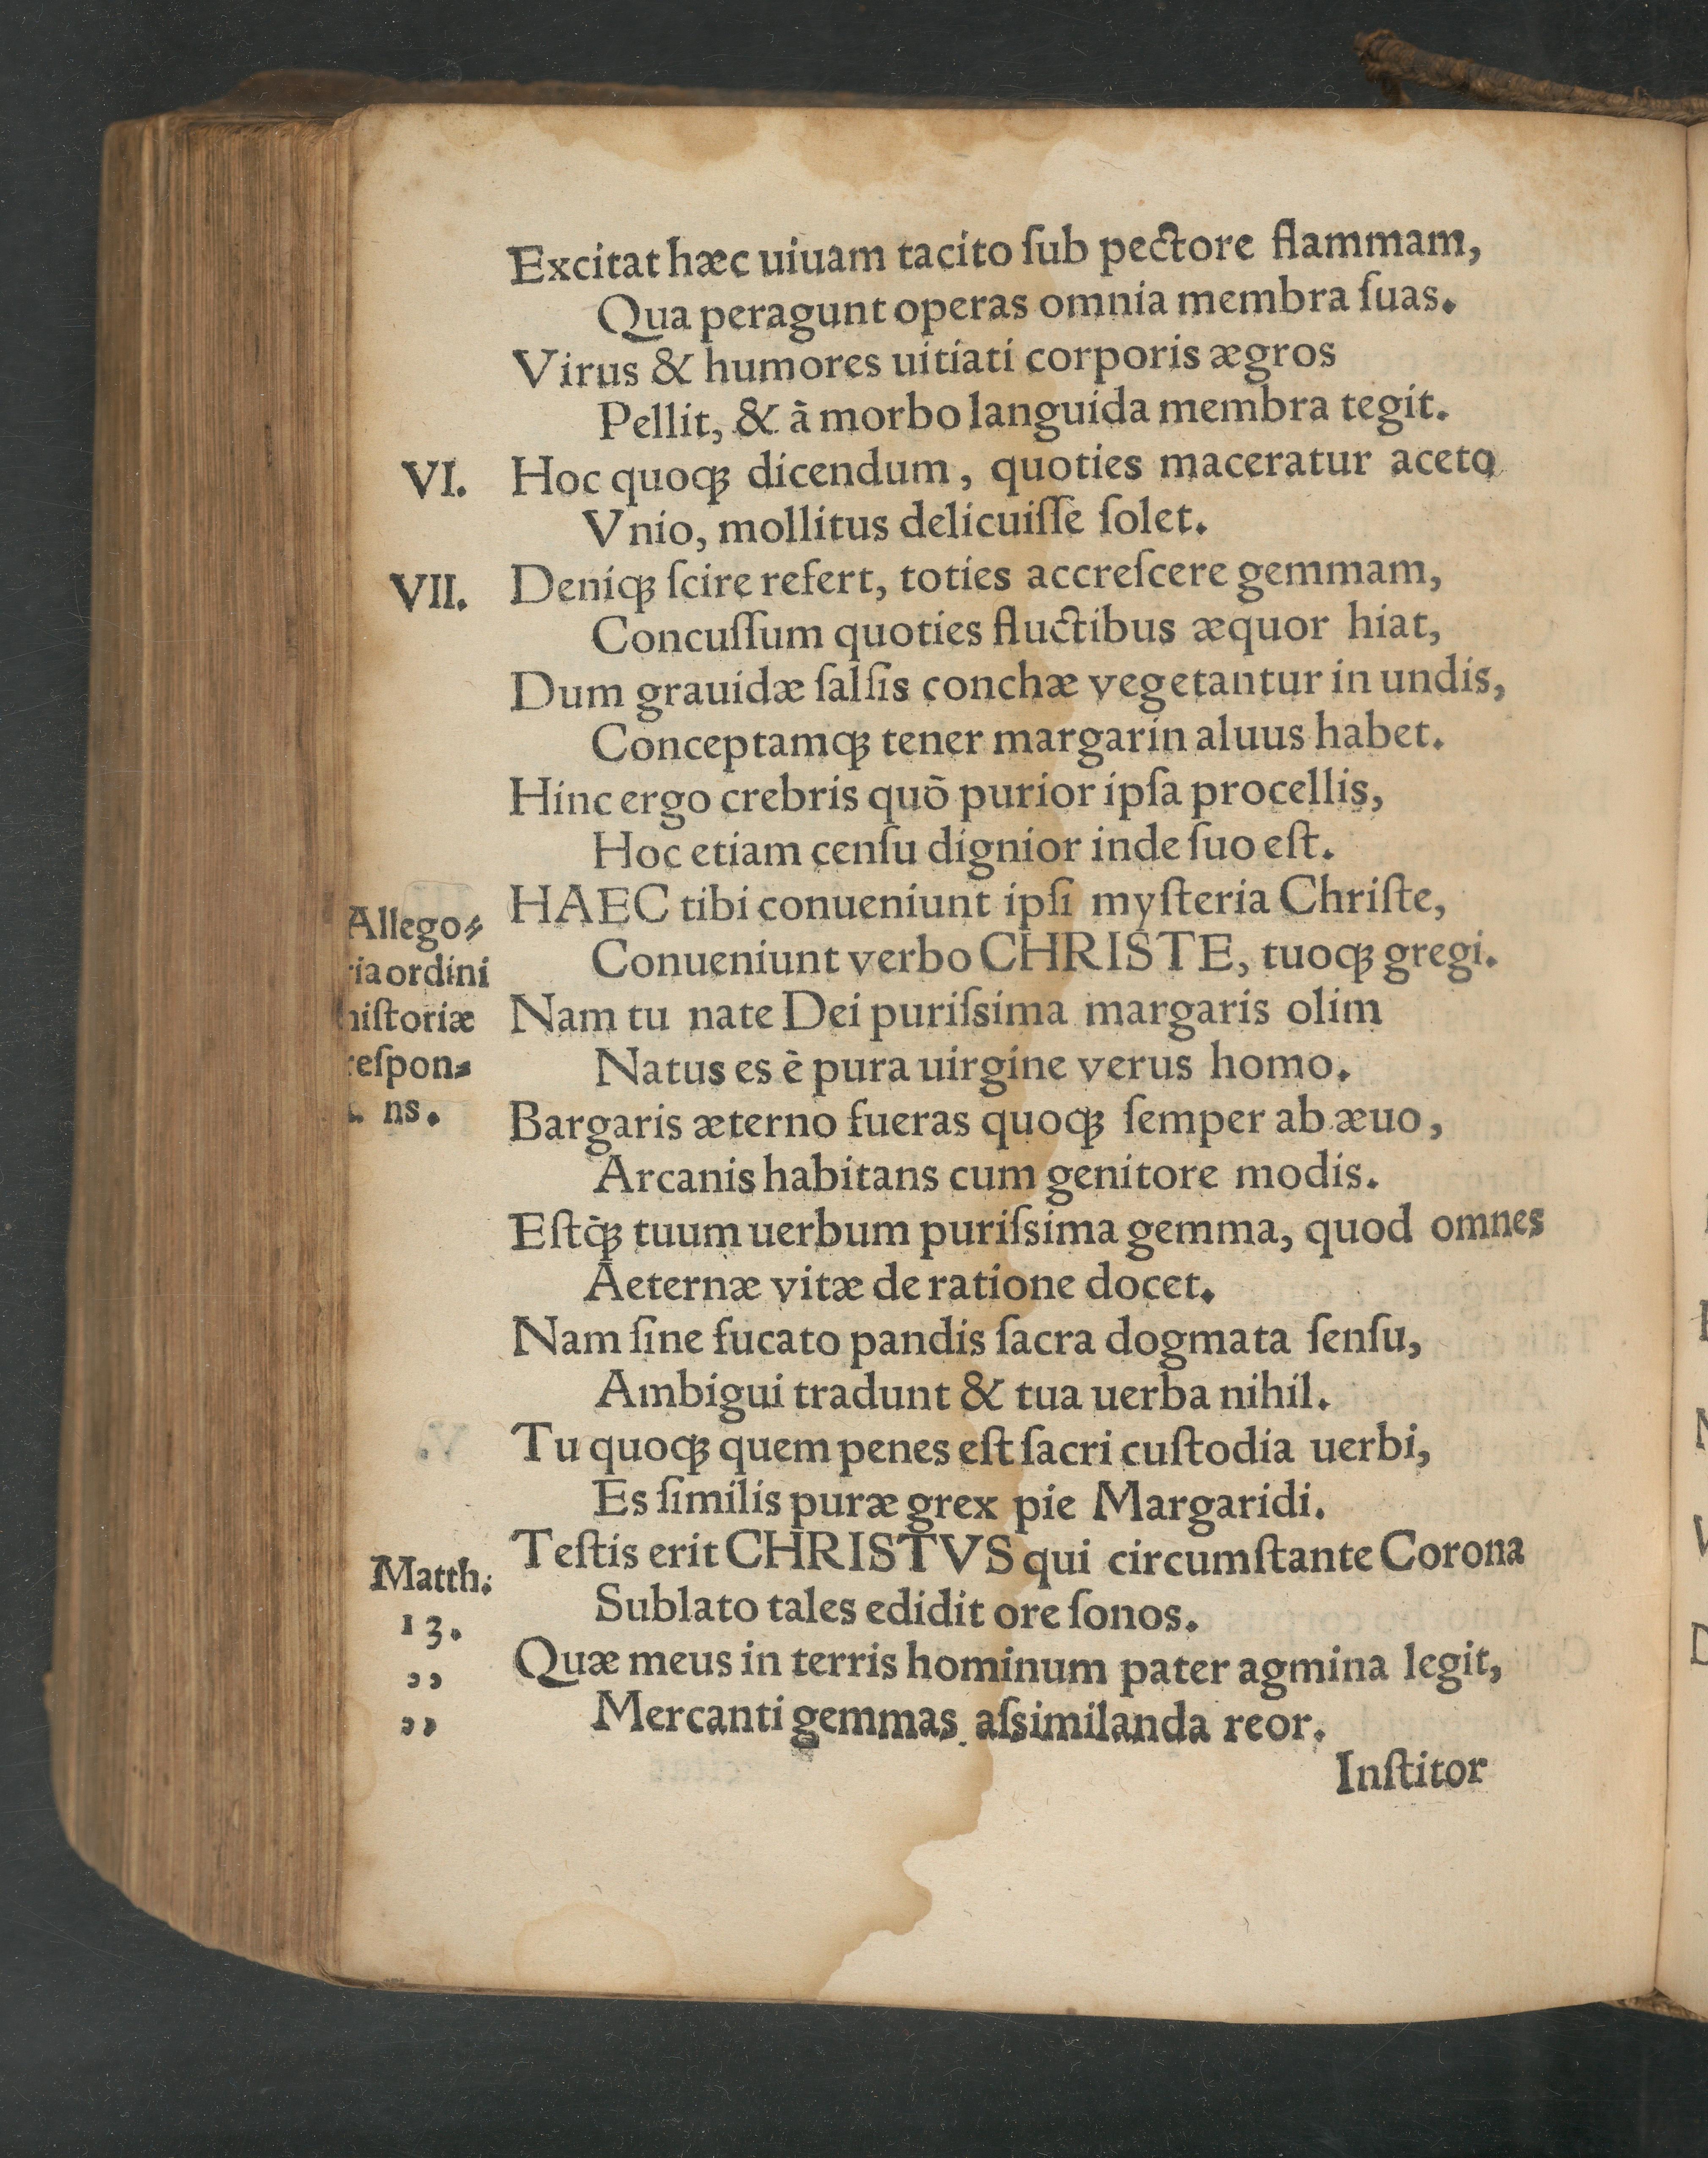 Excitat hæc uiuam tacito ſub pectore flammam,
Qua peragunt operas omnia membra ſuas.
Virus & humores uitiati corporis ægros
Pellit, & à morbo languida membra tegit.
VI. Hoc quoqꝫ dicendum, quoties maceratur aceto
Vnio, mollitus delicuiſſe ſolet.
VII. Deniqꝫ ſcire refert, toties accreſcere gemmam,
Concuſſum quoties fluctibus æquor hiat,
Dum grauidæ ſalſis conchæ vegetantur in undis,
Conceptamqꝫ tener margarin aluus habet.
Hinc ergo crebris quò purior ipſa procellis,
Hoc etiam cenſu dignior inde ſuo eſt.
Allego⸗
ria ordini
hiſtoriæ
reſpon⸗
ns.
HAEC tibi conueniunt ipſi myſteria Chriſte,
Conueniunt verbo CHRISTE, tuoqꝫ gregi.
Nam tu nate Dei puriſsima margaris olim
Natus es è pura uirgine verus homo.
Bargaris æterno fueras quoqꝫ ſemper ab æuo,
Arcanis habitans cum genitore modis.
Eſtq̀ꝫ tuum uerbum puriſsima gemma, quod omnes
Aeternæ vitæ de ratione docet.
Nam ſine fucato pandis ſacra dogmata ſenſu,
Ambigui tradunt & tua uerba nihil.
Tu quoqꝫ quem penes eſt ſacri cuſtodia uerbi,
Es ſimilis puræ grex pie Margaridi.
Matth.
13.
„
„
Teſtis erit CHRISTVS qui circumſtante Corona
Sublato tales edidit ore ſonos.
Quæ meus in terris hominum pater agmina legit,
Mercanti gemmas aſsimilanda reor.
Inſtitor